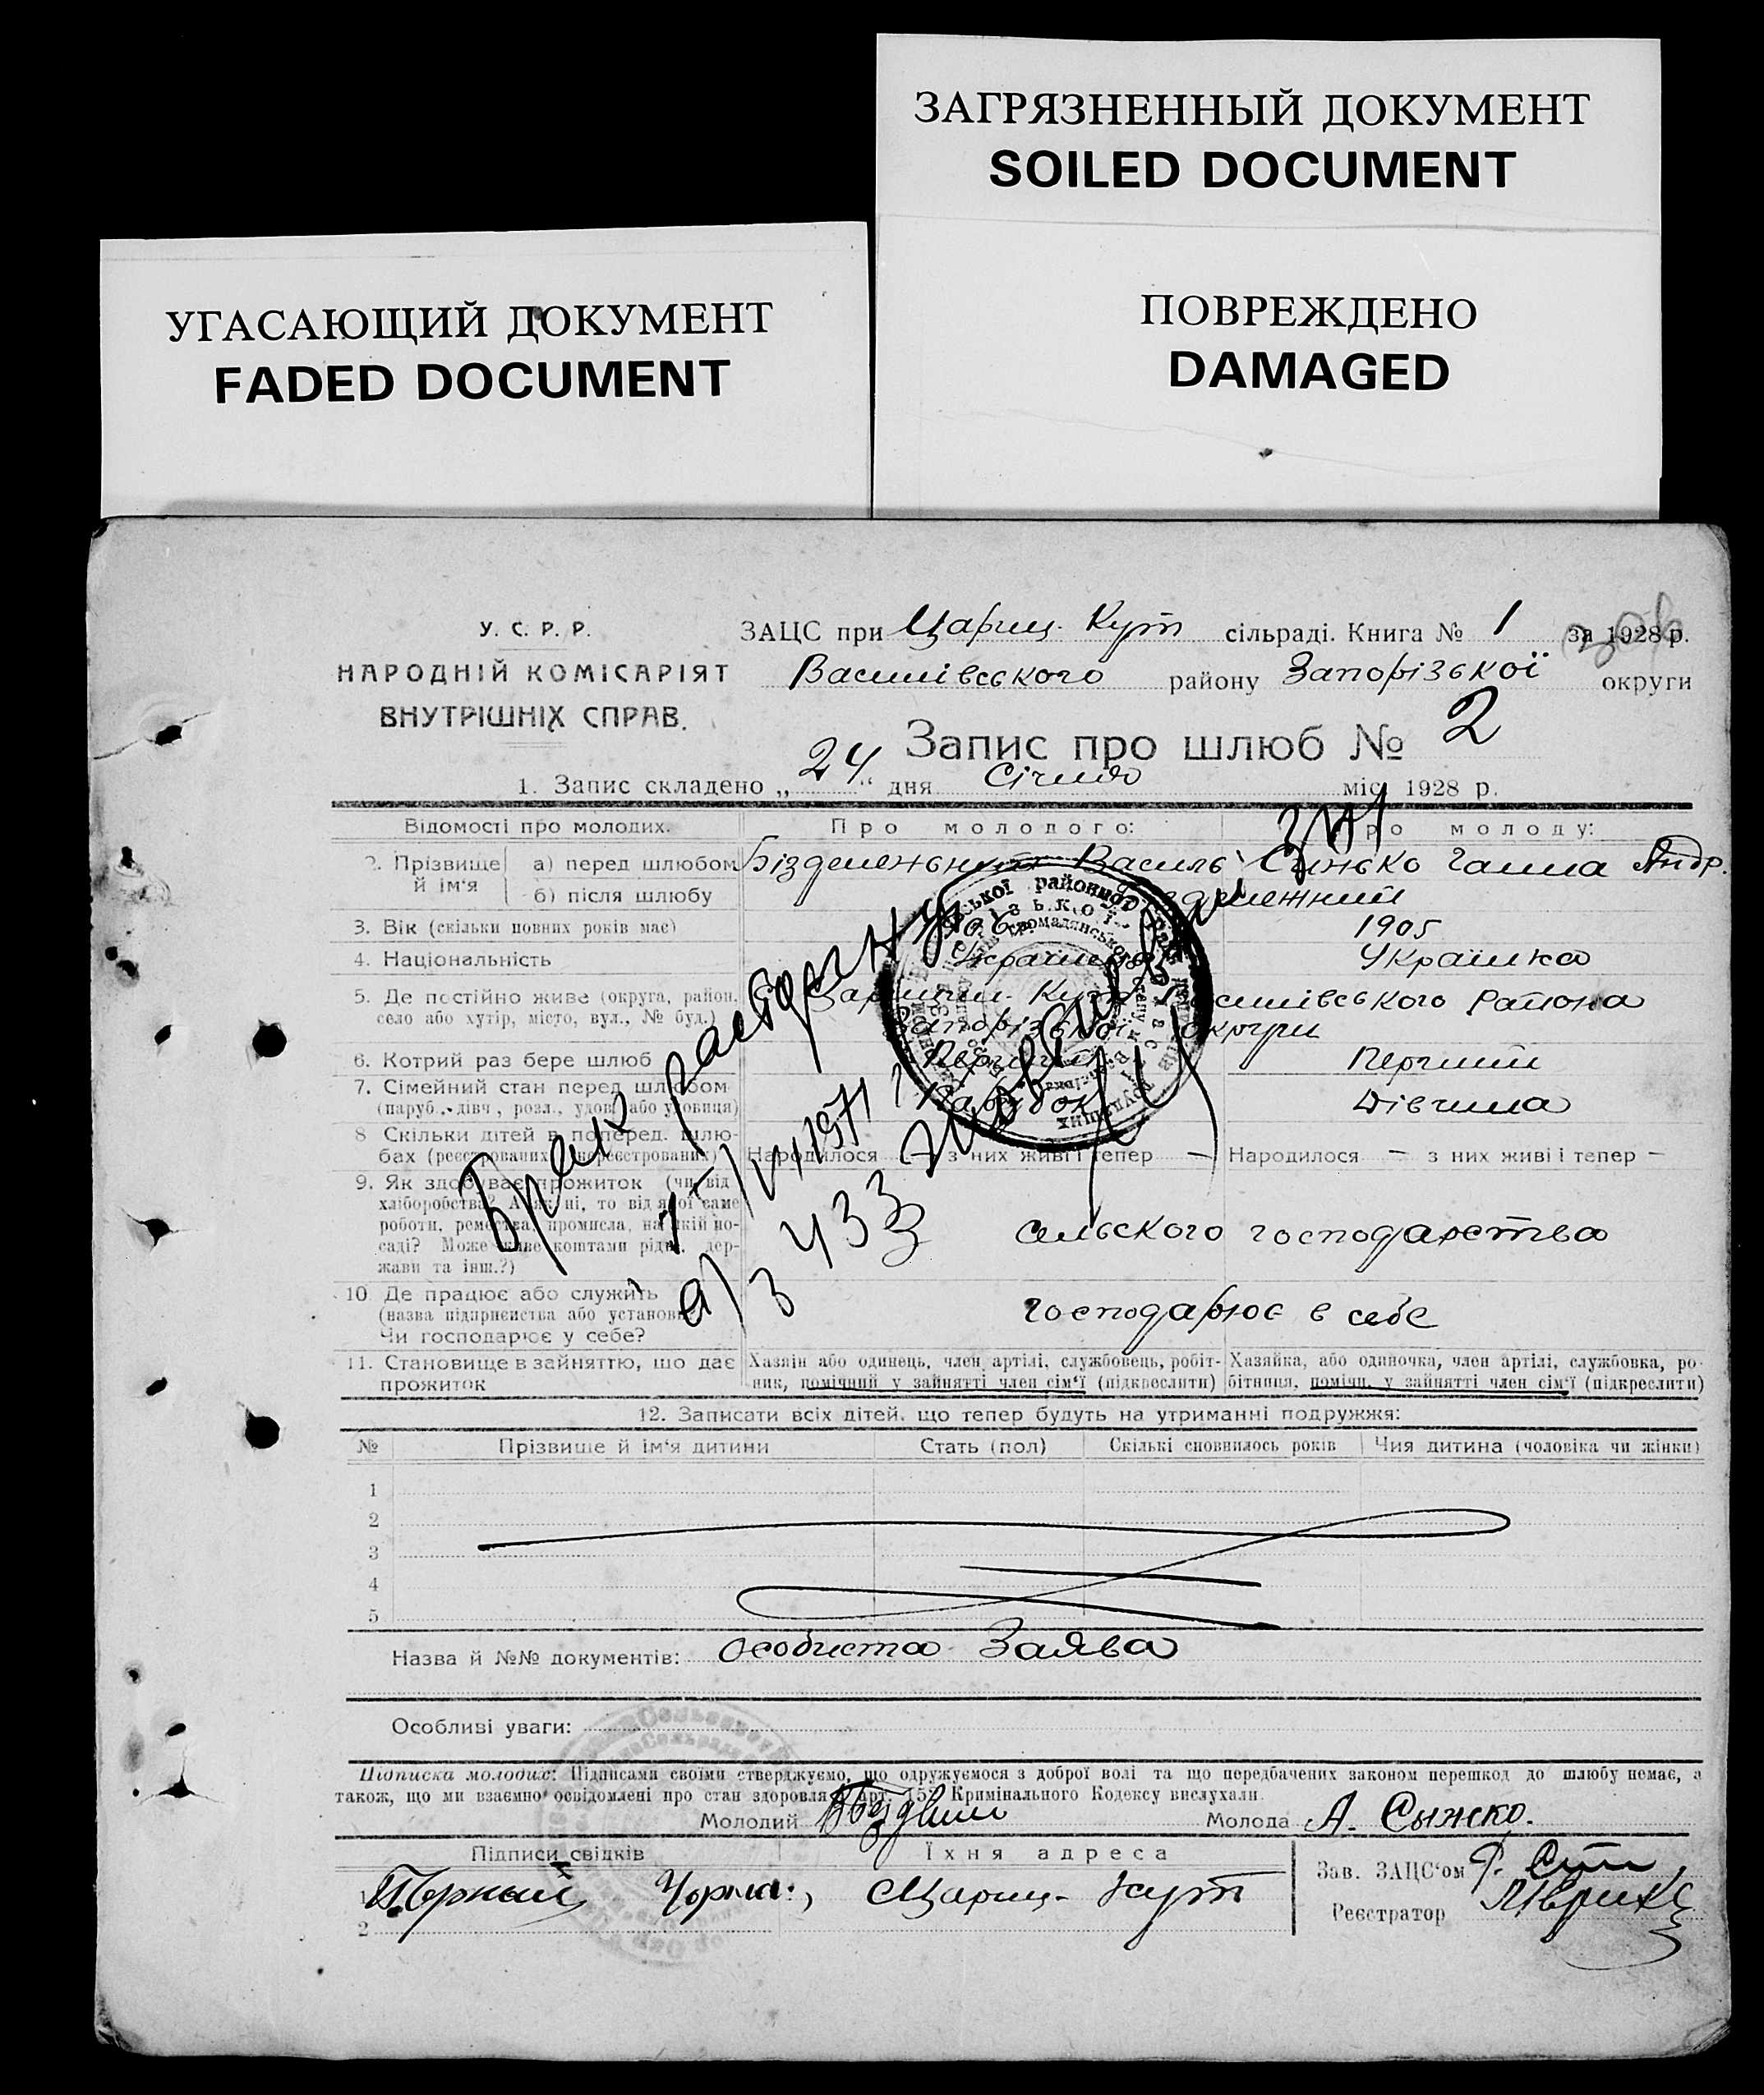 ЗАГРЯЗНЕННЫЙ ДОКУМЕНТ
SOILED DOCUMENT
УГАСАЮЩИЙ ДОКУМЕНТ
FADED DOCUMENT
ПОВРЕЖДЕНО
DAMAGED
У. С. Р. Р.
НАРОДНІЙ КОМІСАРІЯТ
ВНУТРІШНІХ СПРАВ.
ЗАЦС при Цариц. Кут сільраді. Книга № 1 за 1928 р.
Василівського району Запорізької округи
Запис про шлюб № 2
1. Запис складено „24“ дня Січня міс. 1928 р.
Відомості про молодих. Про молодого: Про молоду:
2. Прізвище й ім'я а) перед шлюбом Василь Ганна Андр.
б) після шлюбу
3. Вік (скільки повних років має) 1905
4. Національність Українка
5. Де постійно живе (округа, район, село або хутір, місто, вул., № буд.) Кут Василівського Района
Запорізької округи
6. Котрий раз бере шлюб Перший Перший
7. Сімейний стан перед шлюбом (паруб., дівч., розл., удов. або удовиця) Парубок Дівчина
8 Скільки дітей в поперед. шлюбах (реєстрованих і нереєстрованих) Народилося — з них живі і тепер — Народилося — з них живі і тепер —
9. Як здобуває прожиток (чи від хліборобства? А як ні, то від якої саме роботи, ремества, промисла, на якій посаді? Може живе коштами рідні, держави та інш.?) сельского господарства
10 Де працює або служить (назва підприємства або установи) Чи господарює у себе? господарює в себе
11. Становище в зайняттю, що дає прожиток Хазяїн або одинець, член артілі, службовець, робітник, помічний у зайнятті член сім'ї (підкреслити) Хазяйка, або одиночка, член артілі, службовка, робітниця, помічн. у зайнятті член сім'ї (підкреслити)
Брак расторгнут
433
12. Записати всіх дітей, що тепер будуть на утриманні подружжя:
№ Прізвище й ім'я дитини Стать (пол) Скількі сповнилось років Чия дитина (чоловіка чи жінки)
1
2
3
4
5
Назва й №№ документів: особиста Заява
Особливі уваги:
Підписка молодих: Підписами своїми стверджуємо, що одружуємося з доброї волі та що передбачених законом перешкод до шлюбу немає, а
також, що ми взаємно освідомлені про стан здоровля. Арт. 155 Кримінального Кодексу вислухали.
Молодий Молода А. Сыжко.
Підписи свідків Їхня адреса Зав. ЗАЦС'ом
1 Цариц- Кут
Реєстратор
2